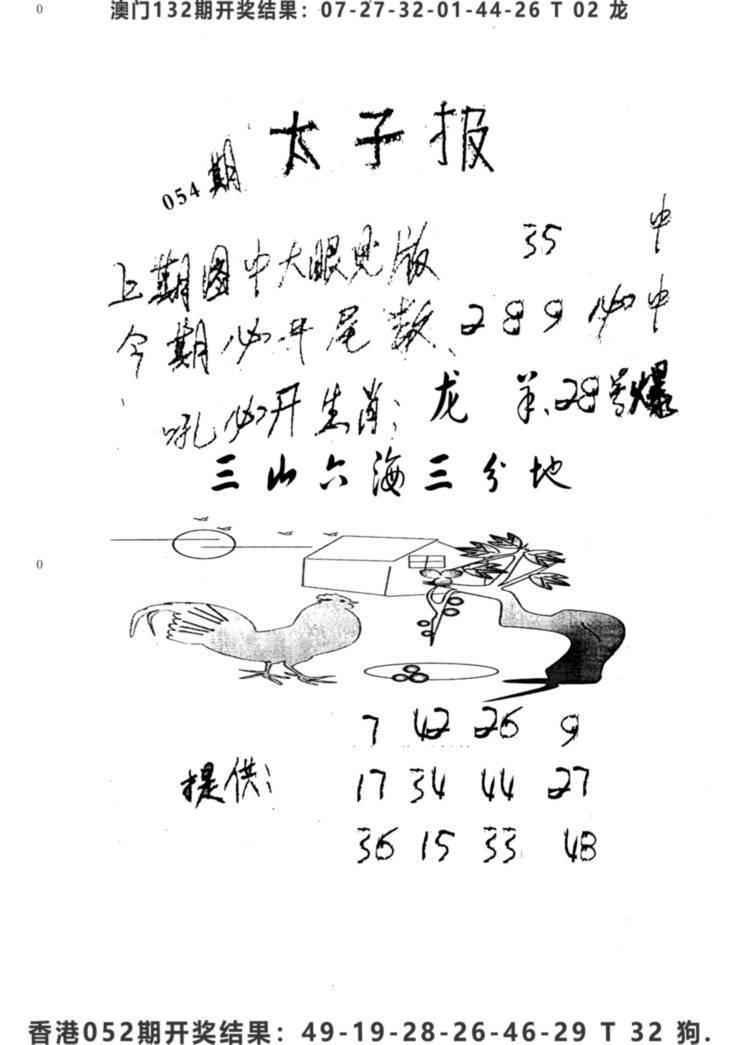 0
澳门132期开奖结果：07-27-32-01-44-26 T 02 龙
太子报
054期
上期图中大眼见版 35 中
今期必开尾数、289必中
吼必开生肖：龙 羊、28号爆
三山六海三分地
0
7 42 26 9
提供： 17 34 44 27
36 15 33 48
香港052期开奖结果：49-19-28-26-46-29 T 32 狗.